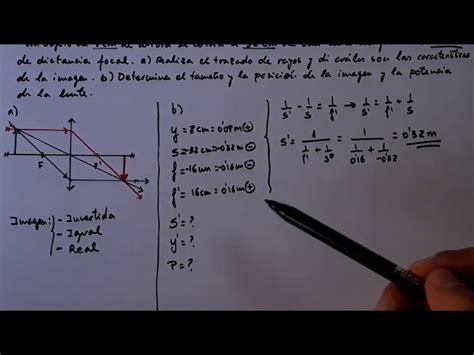 de distancia focal. a) Realiza el trazado de rayos y di cuáles son las características
de la imagen. b) Determina el tamaño y la posición de la imagen y la potencia
de la lente.
a)
F
F'
Imagen: - Invertida
- Igual
- Real
b)
y = 8cm = 0'08m (+)
s = -32cm = -0'32m (-)
f = -16cm = -0'16m (-)
f' = 16cm = 0'16m (+)
s' = ?
y' = ?
P = ?
1/s' - 1/s = 1/f' → 1/s' = 1/f' + 1/s
s' = 1/(1/f' + 1/s) = 1/(1/0'16 + 1/-0'32) = 0'32m